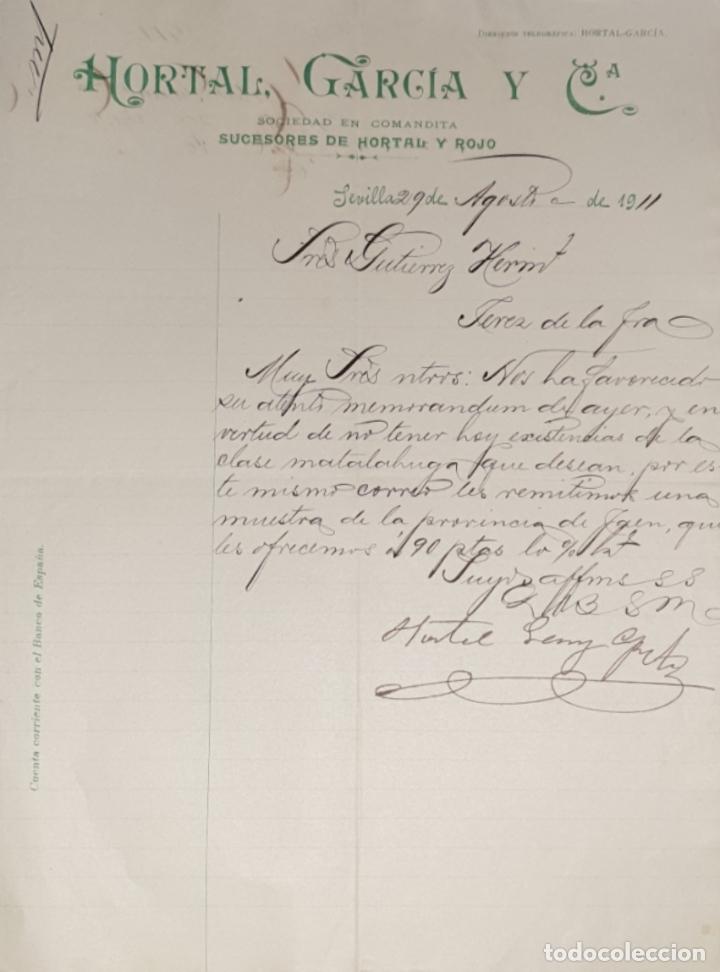 DIRECCIÓN TELEGRÁFICA: HORTAL-GARCÍA.
HORTAL, GARCÍA Y C.ª
SOCIEDAD EN COMANDITA
SUCESORES DE HORTAL Y ROJO
Sevilla 29 de Agosto de 1911
Sres Gutierrez Herm
Jerez de la Fra
Muy Sres ntros: Nos ha favorecido
su atento memorandum de ayer, y en
vertud de no tener hoy existencias de la
clase matalahuga que desean, por es-
te mismo correo les remitimos una
muestra de la provincia de Jaen, que
les ofrecemos á 90 ptas lo % k
Suyos affms SS
Q B S M
Hortal
Cuenta corriente con el Banco de España.
todocoleccion